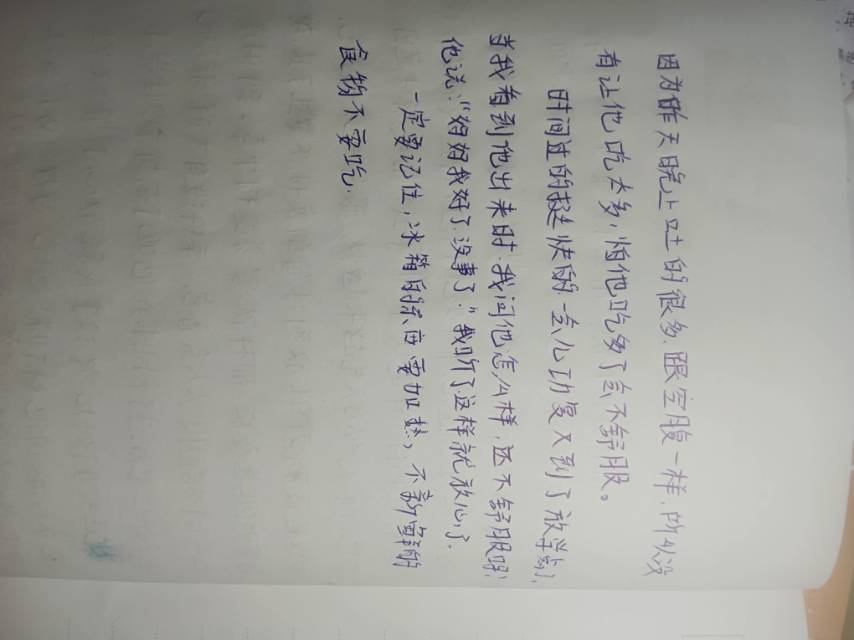 因为昨天晚上吐的很多,跟空腹一样,所以没
有让他吃太多,怕他吃多了会不舒服。
时间过的挺快的,一会儿功复又到了放学了,
当我看到他出来时,我问他怎么样,还不舒服呀,
他说:“妈妈我好了,没事了”我听了这样就放心了.
一定要记住,冰箱的东西要加热,不新鲜的
食物不要吃.